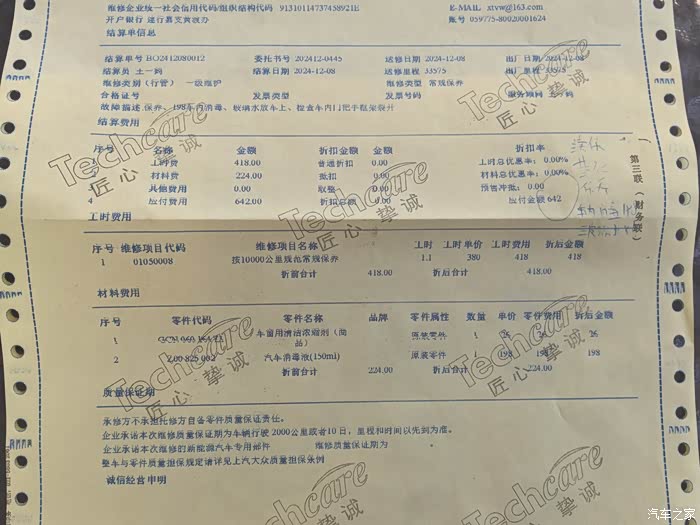 维修企业统一社会信用代码/组织结构代码 91310114737458921E E-MAIL stvw@163.com
开户银行 建行嘉支黄渡办 账号 059775-80020001624
结算单信息
结算单号 BO2412080012 委托书号 202412-0445 送修日期 2024-12-08 出厂日期 2024-12-08
结算员 王一鸣 结算日期 2024-12-08 送修里程 33575 出厂里程 33575
维修类别(行管) 一级维护 维修类型 常规保养
合格证号 发票类型 发票号码 服务顾问
故障描述 保养、198车内消毒、玻璃水放车上、检查车内门把手框架裂开
结算费用
序号 名称 金额 折扣金额 金额 折扣率
工时费 418.00 普通折扣 0.00 工时总优惠率: 0.00%
材料费 224.00 抵扣 0.00 材料总优惠率: 0.00%
其他费用 0.00 取整 0.00 预售冲抵: 0.00
4 应付费用 642.00 折扣总额 0.00 应付金额 642
第三联(财务联)
工时费用
序号 维修项目代码 维修项目名称 工时 工时单价 工时费用 折后金额
1 01050008 按10000公里规范常规保养 1.1 380 418 418
折前合计 418.00 折后合计 418.00
材料费用
序号 零件代码 零件名称 品牌 零件属性 数量 单价 零件费用 折后金额
1 车窗用清洁浓缩剂(简品) 原装零件 1 26 26 26
2 汽车消毒液(150ml) 原装零件 198 198 198
折前合计 224.00 折后合计 224.00
质量保证期
承修方不承担托修方自备零件质量保证责任。
企业承诺本次维修质量保证期为车辆行驶 2000公里或者10日，里程和时间以先到为准。
企业承诺本次维修的新能源汽车专用部件 维修质量保证期为
整车与零件质量担保规定请详见上汽大众质量担保条例
诚信经营申明
Techcare
匠心挚诚
Techcare
匠心挚诚
Techcare
匠心挚诚
Techcare
匠心挚诚
Techcare
匠心挚诚
Techcare
匠心挚诚
汽车之家